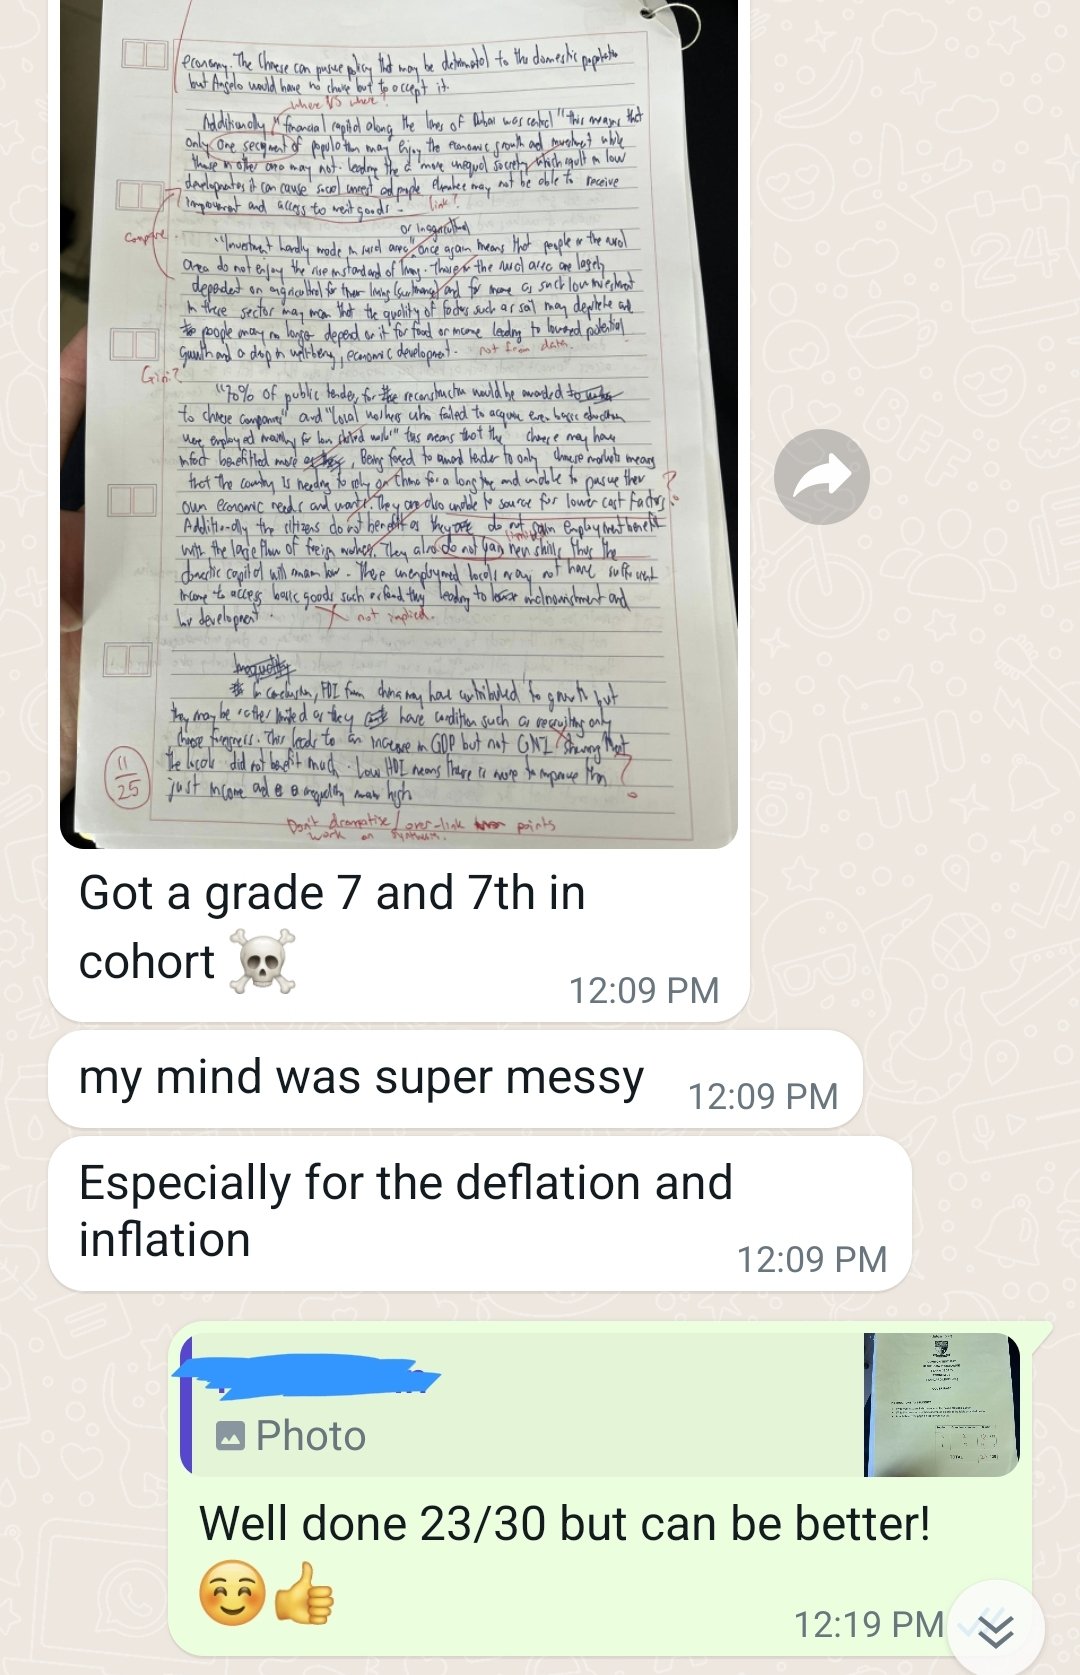 economy. The Chinese can pursue policy that may be detrimental to the domestic population
but Angola would have no choice but to accept it.
where VS where?
Additionally "financial capital along the lines of Dubai was central" this means that
only one segment of population may enjoy the economic growth and investment while
those in other area may not. leading the a more unequal society which result in low
it can cause social unrest and people may not be able to receive
improvement and access to merit goods.
link?
compare.
or in agricultural
"Investment hardly made in rural area" once again means that people in the rural
area do not enjoy the rise in standard of living. Those in the rural area are largely
dependent on for their living and for income as such low investment
in these sector may mean that the quality of factors such as soil may deplete and
people may no longer depend on it for food or income leading to lowered potential
growth and a drop in well-being, economic development.
not from data.
Gini?
"70% of public tender, for the reconstruction would be awarded to
to chinese companies" and "local workers who failed to acquire even basic education
were employed mainly for low skilled work" this means that the chinese may have
infact benefitted more, Being forced to award tender to only chinese markets means
that the country is needing to rely on China for a long time and unable to pursue their
own economic needs and wants. They are also unable to source for lower cost factors.
?
Additionally the citizens do not benefit as they do not gain employment benefit
with the large flow of foreign workers. They also do not gain new skills thus the
limited
domestic capital will remain low. These unemployed locals may not have sufficient
income to access basic goods such as food they leading to malnourishment and
low development.
not implied.
Inequality
In conclusion, FDI from china may have contributed to growth but
they may be rather limited as they have condition such as recruiting only
foreigners. This leads to an increase in GDP but not GNI showing that
the locals did not benefit much. Low HDI means there is more to improve than
just income and inequality high
?
11
25
Don't dramatise / over-link points
work on synthesis.
Got a grade 7 and 7th in
cohort ☠️
12:09 PM
my mind was super messy
12:09 PM
Especially for the deflation and
inflation
12:09 PM
Photo
TOTAL
Well done 23/30 but can be better!
☺️👍
12:19 PM